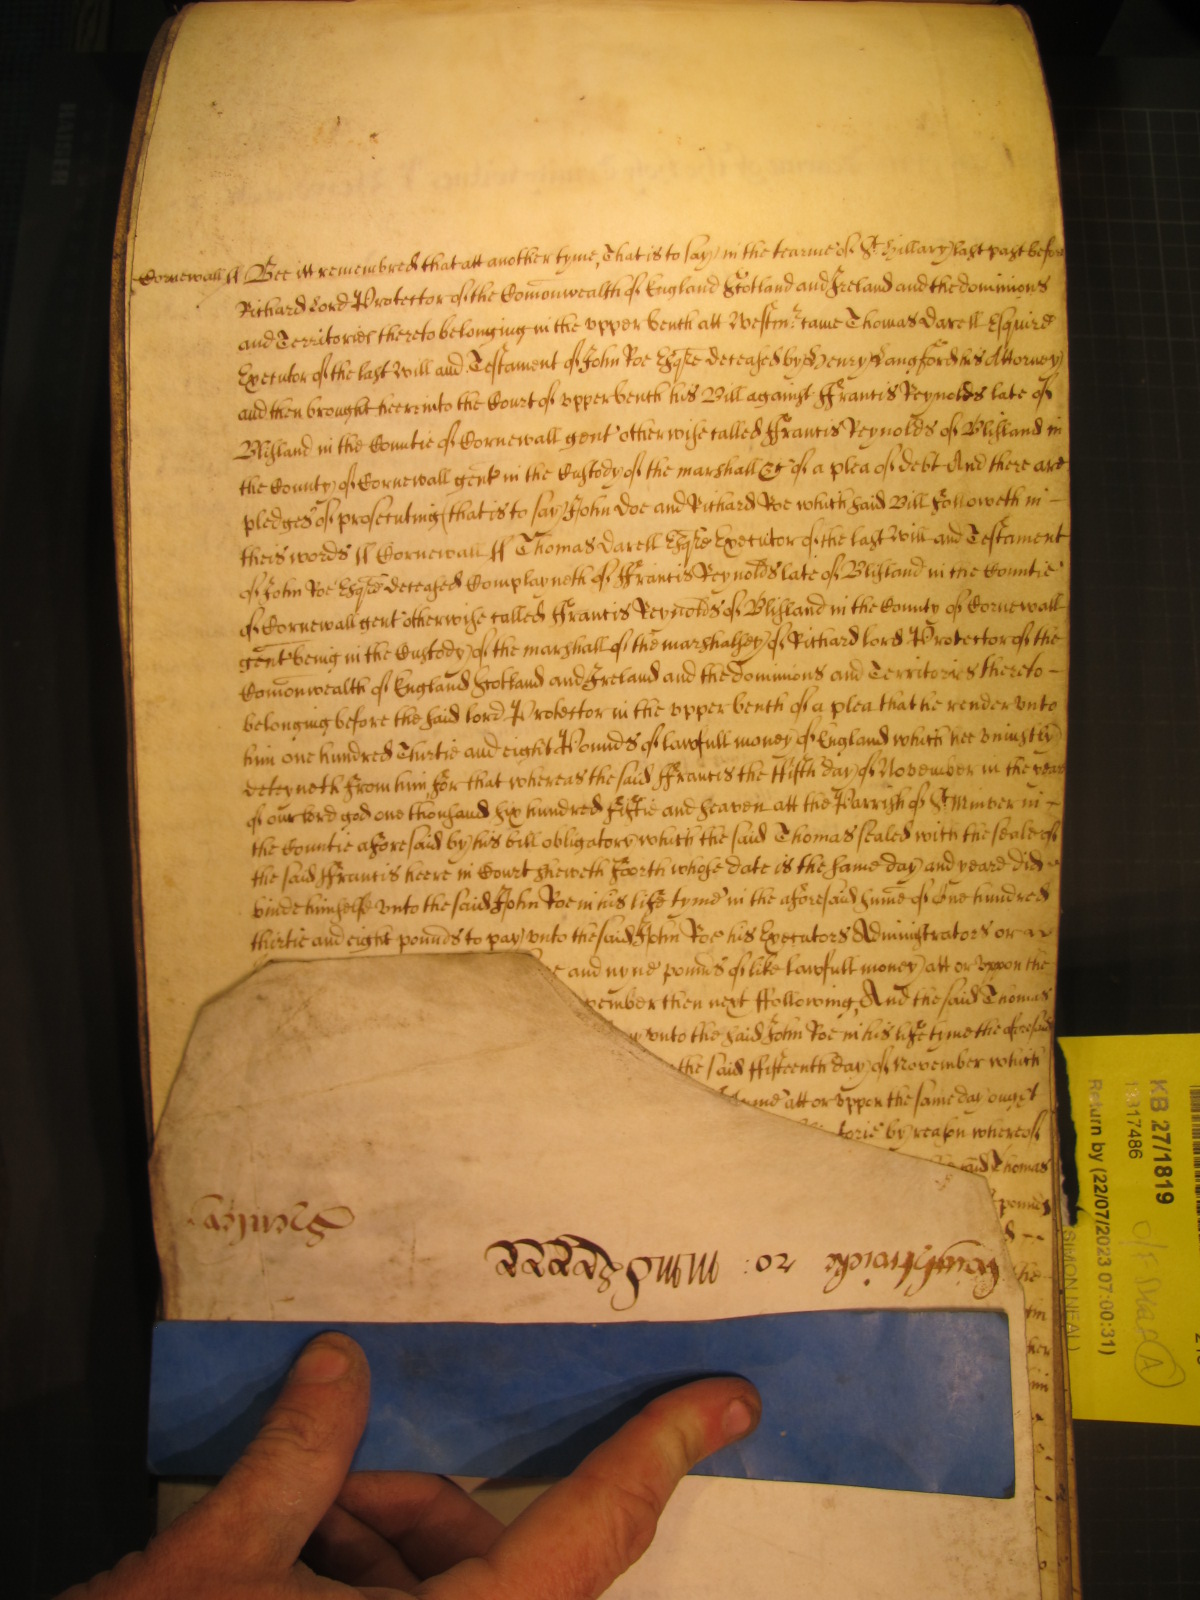 Cornewall ss Bee itt remembred that att another tyme, That is to say) in the tearme of St. Hillary) last past before
Richard Lord Protector of the Com̄onwealth of England Scotland and Ireland and the dominions
and Territories thereto belonging in the upper bench att Westmr. came Thomas Darell Esquire
Executor of the last Will and Testament of John Roe Esqre deceased by Henry Langford his Attorney)
and then brought heere into the Court of upper bench his Bill against ffrancis Reynolds late of
Blisland in the Countie of Cornewall gent otherwise called ffrancis Reynolds of Blisland in
the County) of Cornewall gent in the Custody) of the marshall &c of a plea of debt And there are
pledges of prosecuting (that is to say) John Doe and Richard Roe which said Bill followeth in -
theis words ss Cornewall ss Thomas Darell Esqre Executor of the last Will and Testament
of John Roe Esqre deceased Complayneth of ffrancis Reynolds late of Blisland in the Countie
of Cornewall gent otherwise called ffrancis Reynolds of Blisland in the County of Cornewall
gent being in the Custody) of the marshall of the marshalsey) of Richard lord Protector of the
Com̄onwealth of England Scotland and Ireland and the dominions and Territories thereto -
belonging before the said lord Protector in the upper bench of a plea that he render unto
him one hundred Thirtie and eight Pounds of lawfull money of England which hee uniustly)
deteyneth from him for that whereas the said ffrancis the ffifth day) of November in the yeare
of our lord god one thousand six hundred fiftie and seaven att the Parrish of St. Minver in -
the Countie aforesaid by) his bill obligatory) which the said Thomas sealed with the seale of
the said ffrancis heere in Court sheweth foorth whose date is the same day) and yeare did -
binde himselfe unto the said John Roe in his life tyme in the aforesaid sum̄e of One hundred
thirtie and eight pounds to pay) unto the said John Roe his Executors Administrators or
and nyne pounds of like lawfull money) att or uppon the
vember then next ffollowing, And the said Thomas
unto the said John Roe in his life tyme the aforesaid
the said ffifteenth day) of November which
att or uppon the same day ought
torie by) reason whereof
said Thomas
pounds
the
KB 27/1819
13117486
Return by (22/07/2023 07:00:31)
SIMON NEAL)
KAISER